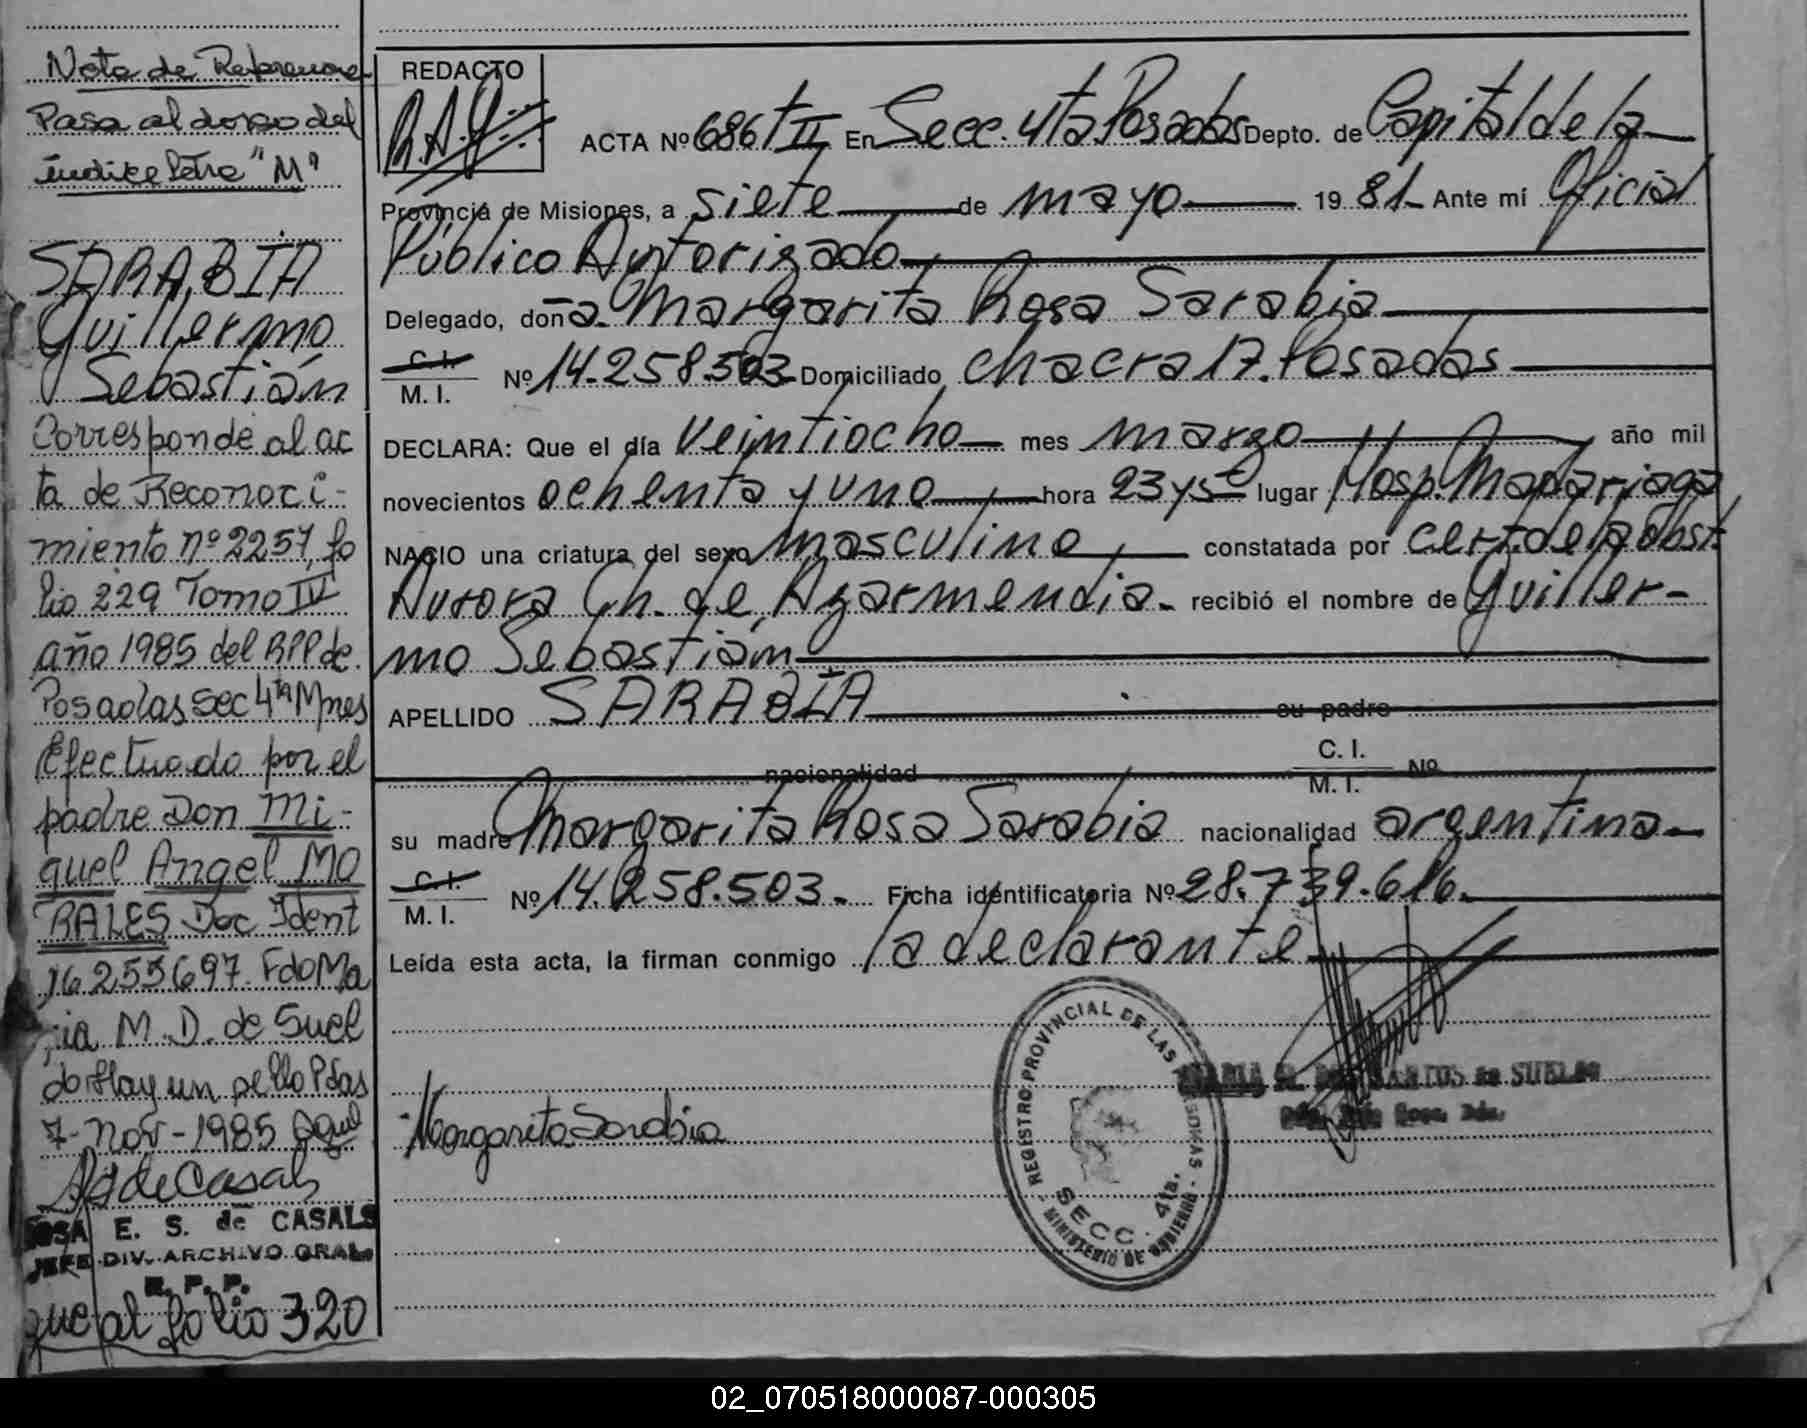 Nota de Referencia
Pasa al dorso del
índice letra "M"
SARABIA
Guillermo
Sebastián
Corresponde al ac
ta de Reconoci-
miento nº 2257, fo
lio 229 Tomo IV
año 1985 del RPP de
Posadas sec 4ta Mnes
Efectuado por el
padre Don Mi-
guel Angel MO
RALES Doc Ident
16255697. Fdo Ma
ria M. D. de Suel
do Hay un sello Pdas
7-Nov-1985
ROSA E. S. de CASALS
JEFE DIV. ARCHIVO GRAL.
R. P. P.
que al folio 320
REDACTO
ACTA Nº 686 T II En Secc. 4ta Posadas Depto. de Capital de la
Provincia de Misiones, a siete de mayo 19 81 Ante mí Oficial
Público Autorizado
Delegado, doña. Margarita Rosa Sarabia
C. I.
M. I. Nº 14.258.503 Domiciliado chacra 17. Posadas
DECLARA: Que el día veintiocho mes marzo año mil
novecientos ochenta y uno hora 23 y 5 lugar Hosp. Madariaga
NACIO una criatura del sexo masculino constatada por cert. de la obst.
Aurora Ch. de Azarmendia recibió el nombre de Guiller-
mo Sebastián
APELLIDO SARABIA su padre
nacionalidad C. I. M. I. Nº
su madre Margarita Rosa Sarabia nacionalidad argentina
C. I.
M. I. Nº 14.258.503. Ficha identificatoria Nº 28.739.616.
Leída esta acta, la firman conmigo la declarante
REGISTRO PROVINCIAL DE LAS PERSONAS
MINISTERIO DE GOBIERNO
SECC. 4ta.
MARIA M. DOS SANTOS de SUELDO
Margarita Sarabia
02_070518000087-000305